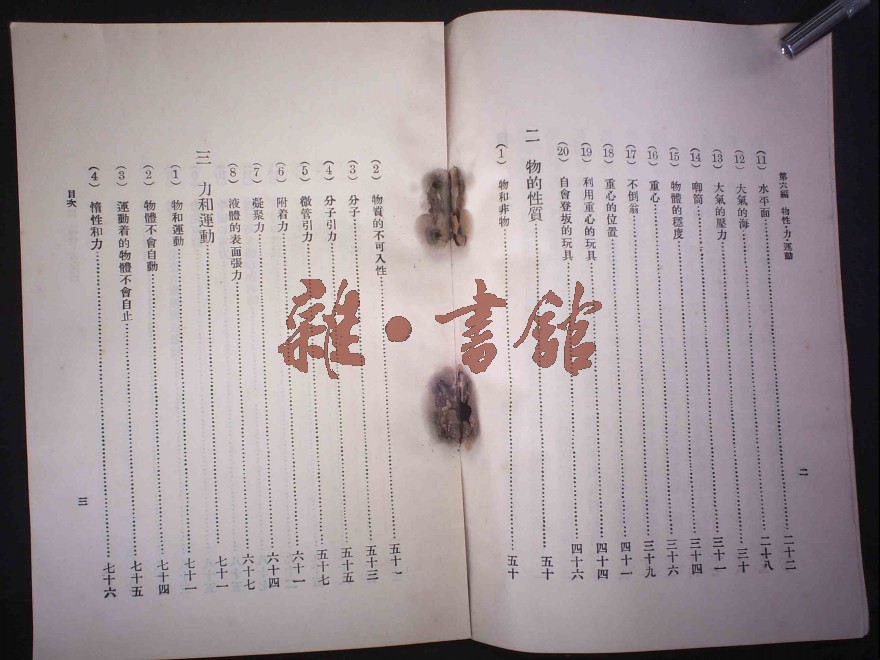 第六編 物性·力·運動
二
(11) 水平面……二十二
(12) 大氣的海……二十八
(13) 大氣的壓力……三十
(14) 唧筒……三十一
(15) 物體的穩度……三十四
(16) 重心……三十六
(17) 不倒翁……三十九
(18) 重心的位置……四十一
(19) 利用重心的玩具……四十四
(20) 自會登坂的玩具……四十六
二 物的性質……五十
(1) 物和非物……五十
(2) 物質的不可入性……五十一
(3) 分子……五十三
(4) 分子引力……五十五
(5) 微管引力……五十七
(6) 附着力……六十一
(7) 凝聚力……六十四
(8) 液體的表面張力……六十七
三 力和運動……七十一
(1) 物和運動……七十一
(2) 物體不會自動……七十四
(3) 運動着的物體不會自止……七十五
(4) 惰性和力……七十六
目次
三
雜·書館